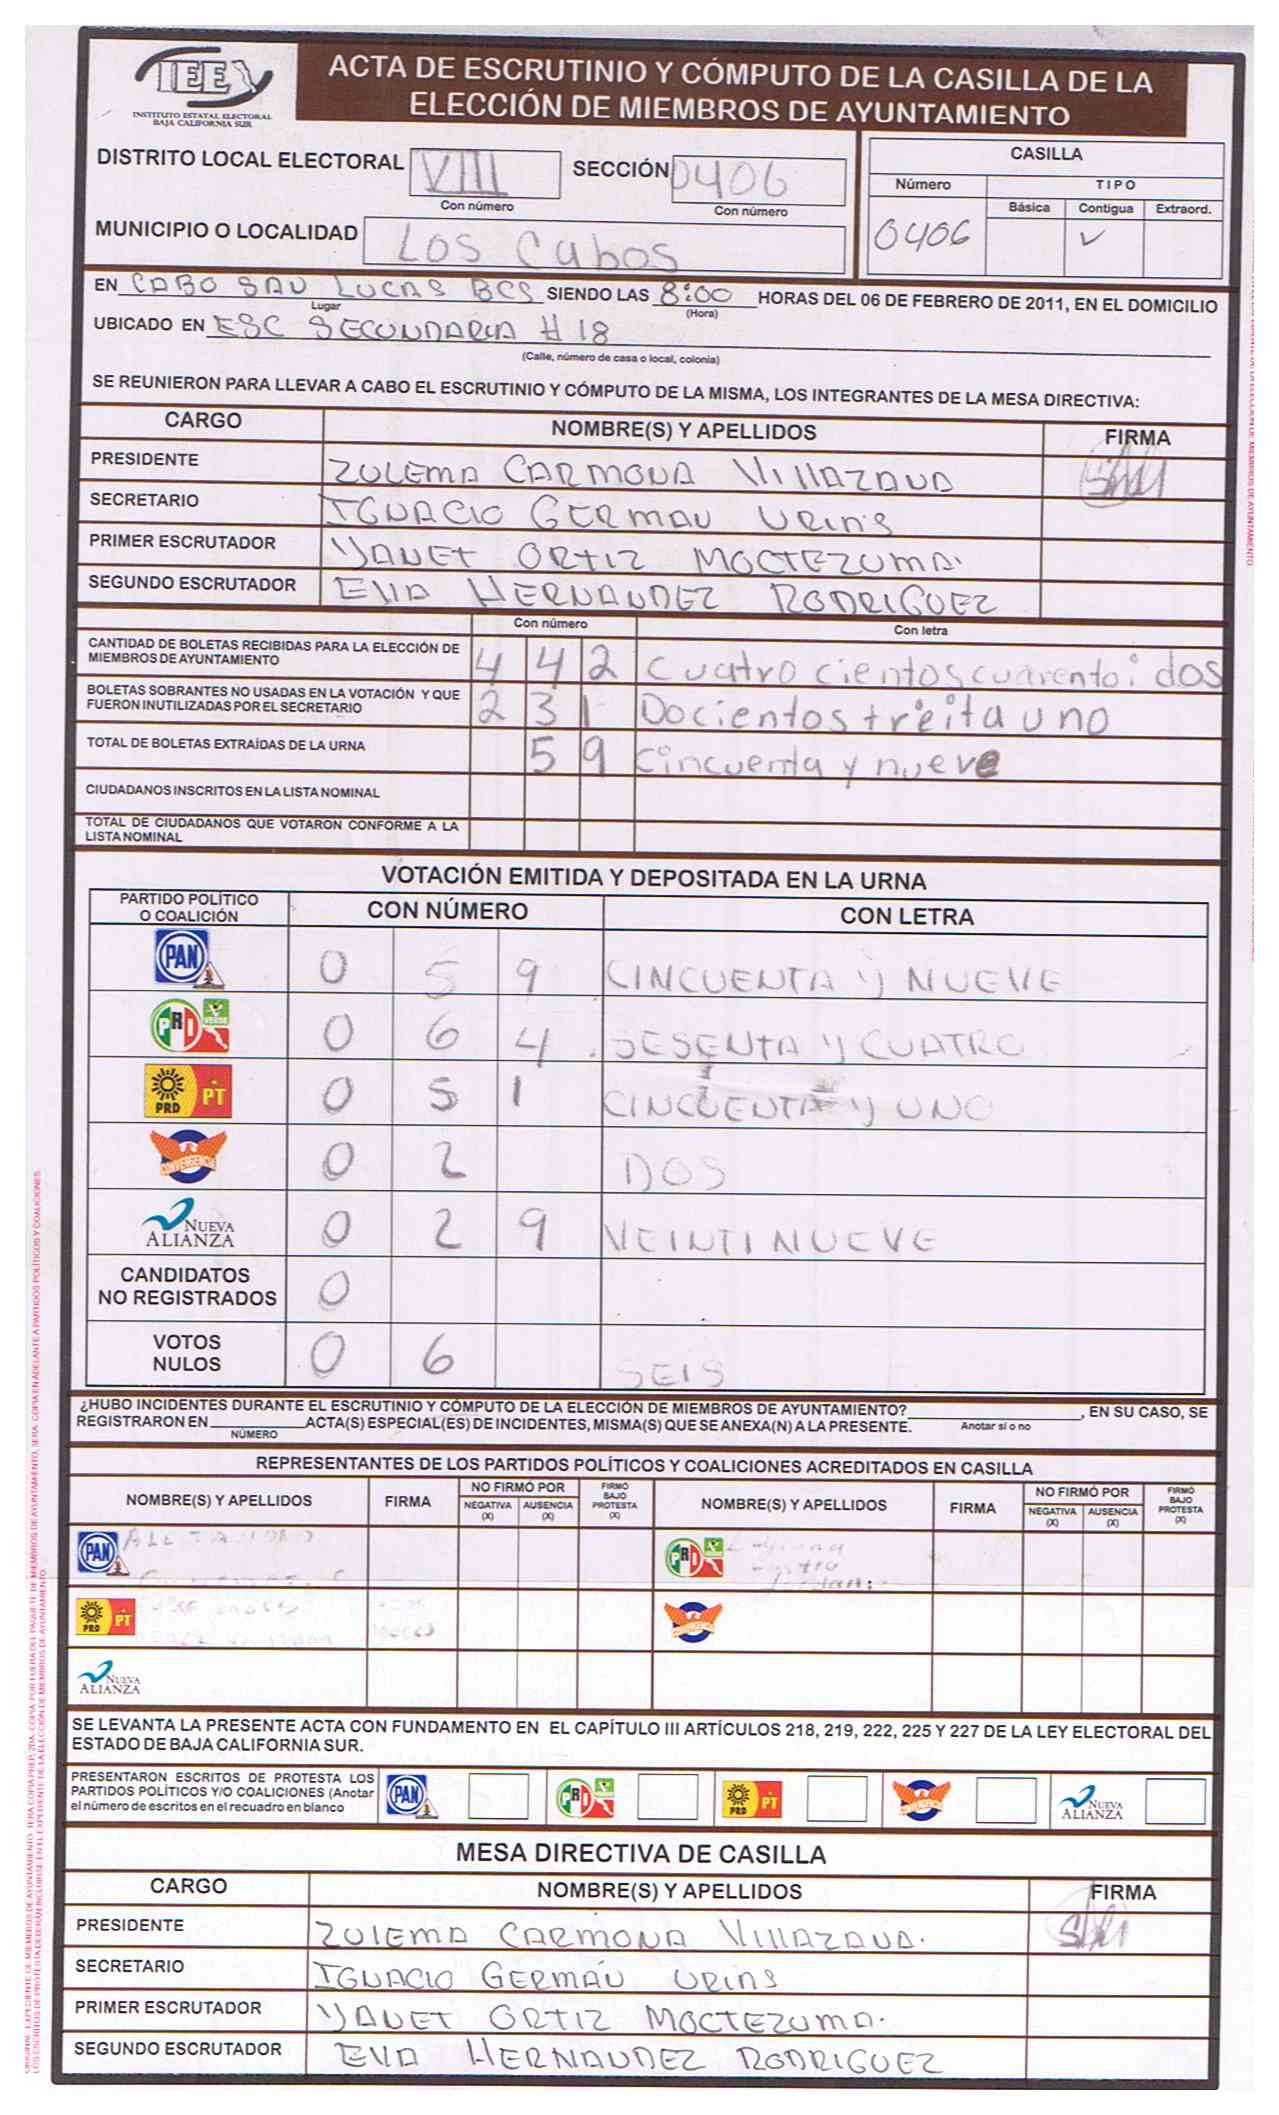 IEE
INSTITUTO ESTATAL ELECTORAL
BAJA CALIFORNIA SUR
ACTA DE ESCRUTINIO Y CÓMPUTO DE LA CASILLA DE LA
ELECCIÓN DE MIEMBROS DE AYUNTAMIENTO
DISTRITO LOCAL ELECTORAL VIII SECCIÓN 0406
Con número Con número
MUNICIPIO O LOCALIDAD Los Cabos
CASILLA
Número TIPO
Básica Contigua Extraord.
0406 ✓
EN CABO SAN LUCAS BCS SIENDO LAS 8:00 HORAS DEL 06 DE FEBRERO DE 2011, EN EL DOMICILIO
Lugar (Hora)
UBICADO EN ESC SECUNDARIA # 18
(Calle, número de casa o local, colonia)
SE REUNIERON PARA LLEVAR A CABO EL ESCRUTINIO Y CÓMPUTO DE LA MISMA, LOS INTEGRANTES DE LA MESA DIRECTIVA:
CARGO NOMBRE(S) Y APELLIDOS FIRMA
PRESIDENTE ZULEMA CARMONA VIllAZANA
SECRETARIO IGNACIO GERMAN URINS
PRIMER ESCRUTADOR YANET ORTIZ MOCTEZUMA.
SEGUNDO ESCRUTADOR EVA HERNANDEZ RODRIGUEZ
Con número Con letra
CANTIDAD DE BOLETAS RECIBIDAS PARA LA ELECCIÓN DE
MIEMBROS DE AYUNTAMIENTO 4 4 2 Cuatro cientos cuarento i dos
BOLETAS SOBRANTES NO USADAS EN LA VOTACIÓN Y QUE
FUERON INUTILIZADAS POR EL SECRETARIO 2 3 1 Docientos treita uno
TOTAL DE BOLETAS EXTRAÍDAS DE LA URNA 5 9 Cincuenta y nueve
CIUDADANOS INSCRITOS EN LA LISTA NOMINAL
TOTAL DE CIUDADANOS QUE VOTARON CONFORME A LA
LISTA NOMINAL
VOTACIÓN EMITIDA Y DEPOSITADA EN LA URNA
PARTIDO POLÍTICO
O COALICIÓN CON NÚMERO CON LETRA
PAN 0 5 9 CINCUENTA Y NUEVE
PRI VERDE 0 6 4 SESENTA Y CUATRO
PRD PT 0 5 1 CINCUENTA Y UNO
CONVERGENCIA 0 2 DOS
NUEVA ALIANZA 0 2 9 VEINTINUEVE
CANDIDATOS
NO REGISTRADOS 0
VOTOS
NULOS 0 6 SEIS
¿HUBO INCIDENTES DURANTE EL ESCRUTINIO Y CÓMPUTO DE LA ELECCIÓN DE MIEMBROS DE AYUNTAMIENTO? , EN SU CASO, SE
REGISTRARON EN ACTA(S) ESPECIAL(ES) DE INCIDENTES, MISMA(S) QUE SE ANEXA(N) A LA PRESENTE. Anotar sí o no
NÚMERO
REPRESENTANTES DE LOS PARTIDOS POLÍTICOS Y COALICIONES ACREDITADOS EN CASILLA
NOMBRE(S) Y APELLIDOS FIRMA NO FIRMÓ POR NEGATIVA (X) AUSENCIA (X) FIRMÓ BAJO PROTESTA (X) NOMBRE(S) Y APELLIDOS FIRMA NO FIRMÓ POR NEGATIVA (X) AUSENCIA (X) FIRMÓ BAJO PROTESTA (X)
PAN PRI
PRD PT CONVERGENCIA
NUEVA ALIANZA
SE LEVANTA LA PRESENTE ACTA CON FUNDAMENTO EN EL CAPÍTULO III ARTÍCULOS 218, 219, 222, 225 Y 227 DE LA LEY ELECTORAL DEL
ESTADO DE BAJA CALIFORNIA SUR.
PRESENTARON ESCRITOS DE PROTESTA LOS
PARTIDOS POLÍTICOS Y/O COALICIONES (Anotar
el número de escritos en el recuadro en blanco
PAN PRI PRD PT CONVERGENCIA NUEVA ALIANZA
MESA DIRECTIVA DE CASILLA
CARGO NOMBRE(S) Y APELLIDOS FIRMA
PRESIDENTE ZULEMA CARMONA VIllAZANA.
SECRETARIO IGNACIO GERMÁN URINS
PRIMER ESCRUTADOR YANET ORTIZ MOCTEZUMA.
SEGUNDO ESCRUTADOR EVA HERNANDEZ RODRIGUEZ